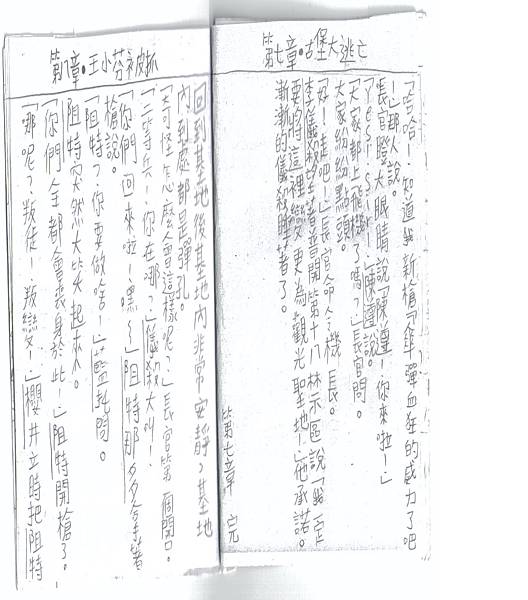 第七章·古堡大逃亡
「哈哈!知道我新槍「傘彈血狂的威力了吧
!」那人說。
長官瞪大眼睛說「陳遑!你來啦!」
「Yes! Sir!」陳遑說。
「大家都上飛機了嗎?」長官問。
大家紛紛點頭。
「好!走吧!」長官命令機長。
李儀殺坐著普開第十八林示區說「我一定
要將這裡變更為觀光聖地!」他承諾。
漸漸的儀殺睡著了。
第七章 完
第八章·王小芬被抓
回到基地後基地內非常安靜、基地
內到處都是彈孔。
「奇怪怎麼會這樣呢?」長官第一個開口。
「二等兵!你在哪?」儀殺大叫!
「你們回來啦!嘿~」阻特那多多拿著
槍說。
「阻特?你要做啥!」藍乾問。
阻特突然大笑起來。
「你們全都會喪身於此!」阻特開槍了。
「哪呢?叛徒!叛變!」櫻井立時把阻特